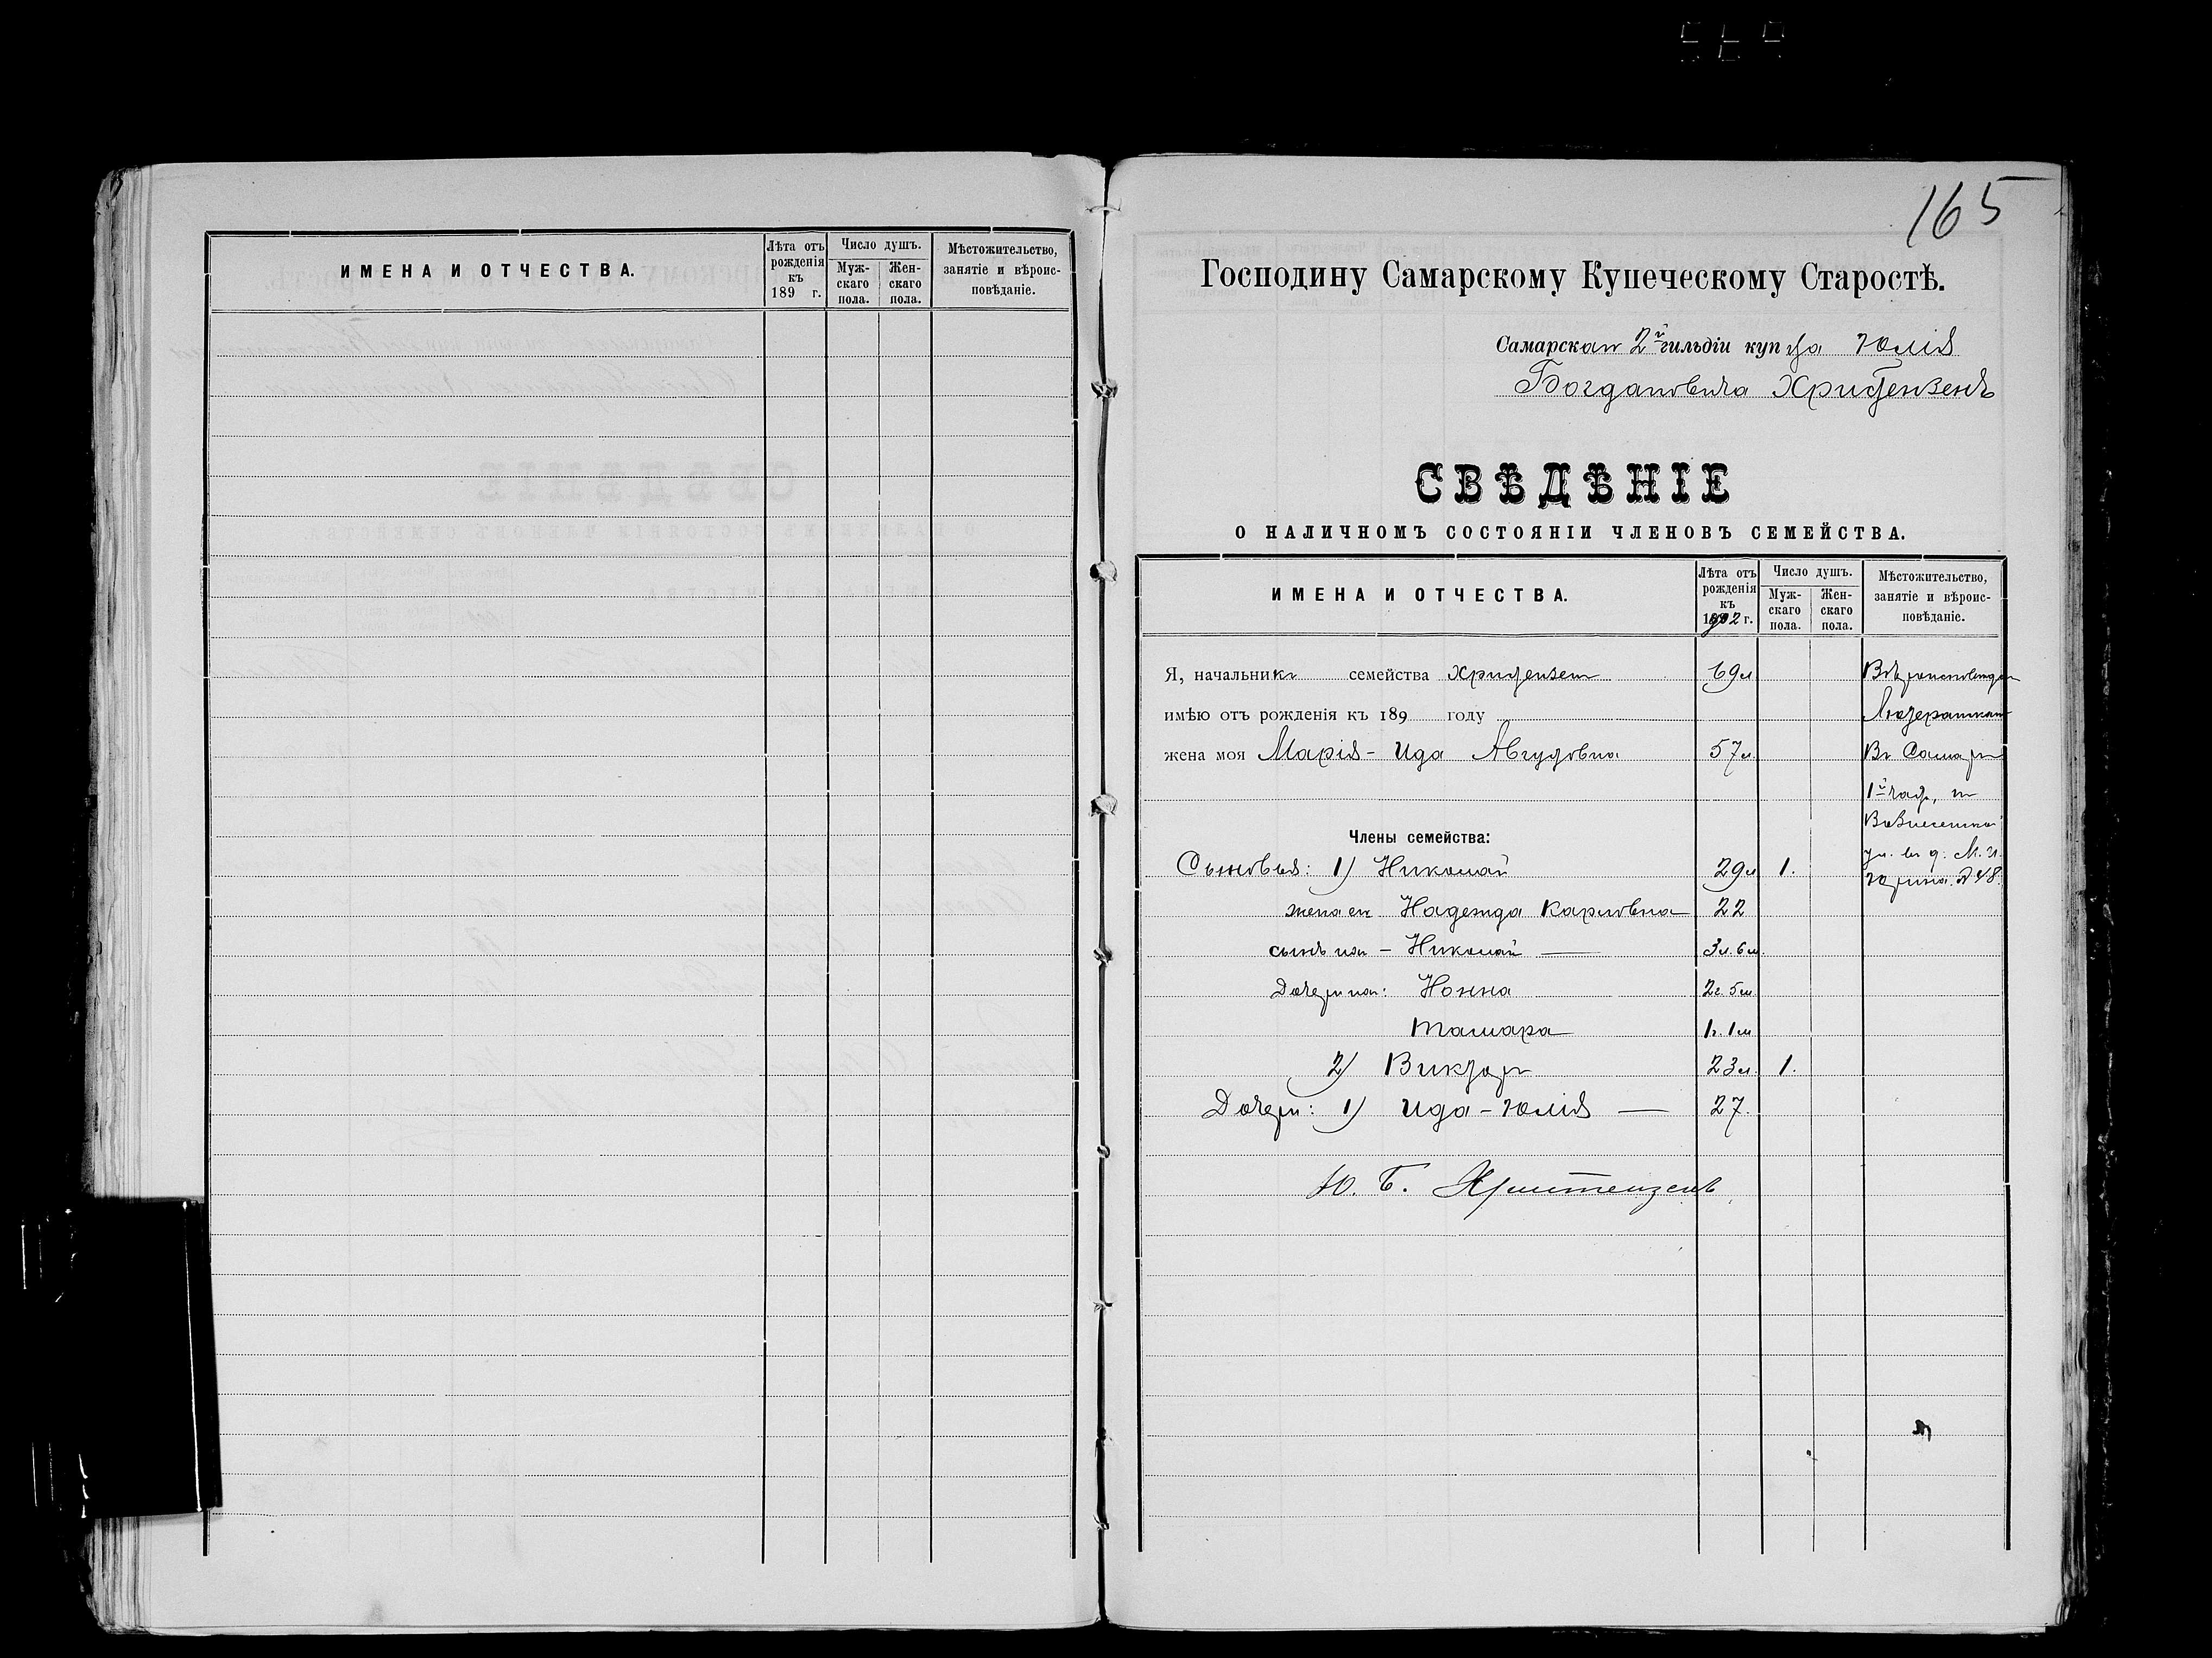 ИМЕНА И ОТЧЕСТВА.
Лѣта отъ рожденія къ 189 г.
Число душъ.
Мужскаго пола.
Женскаго пола.
Мѣстожительство, занятіе и вѣроисповѣданіе.
165
Господину Самарскому Купеческому Старостѣ.
Самарскаго 2й гильдіи купца Юлія
Богдановича Христензенъ
СВѢДѢНІЕ
О НАЛИЧНОМЪ СОСТОЯНІИ ЧЛЕНОВЪ СЕМЕЙСТВА.
ИМЕНА И ОТЧЕСТВА.
Лѣта отъ
рожденія
къ
1902 г.
Число душъ.
Муж-
скаго
пола.
Жен-
скаго
пола.
Мѣстожительство,
занятіе и вѣроис-
повѣданіе.
Я, начальникъ семейства Христензенъ 69 л Вѣроисповѣдан
имѣю отъ рожденія къ 189 году Лютеранскаго
жена моя Марія - Ида Августовна 57 л. Въ Самарѣ
1й части, по
Члены семейства: Вознесенской
Сыновья: 1) Николай 29 л 1. ул. въ д. М. И.
№ 48.
жена его Надежда Карловна 22
сынъ ихъ - Николай 3 л. 6 м.
Дочери ихъ: Нонна 2 г. 5 м.
Тамара 1 г. 1 м
2) Викторъ 23 л. 1.
Дочери: 1) Ида - Юлія 27.
Ю. Б. Христензенъ